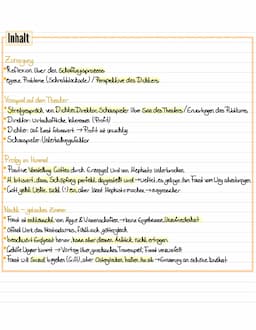 Inhalt
Zueignung
• Reflexion über den Schaffungsprozess
• eigene Probleme (Schreibblockade) / Perspektive des Dichters
Vorspiel auf dem Theater
• Streitgespräch von Dichter, Direktor, Schauspieler über Sinn des Theaters / Erwartungen des Publikums
• Direktor: Wirtschaftliche Interessen (Profit)
• Dichter: auf Kunst fokussiert → Profit ist unwichtig
• Schauspieler: Unterhaltungsfaktor
Prolog im Himmel
• Positive Vorstellung Gottes durch Erzengel und von Mephisto unterbrochen
• M. kritisiert, dass Schöpfung perfekt dargestellt wird → wettet, es gelinge ihm Faust vom Weg abzubringen
• Gott geht Wette nicht (!) ein, aber lässt Mephisto machen →
Nacht – gotisches Zimmer
• Faust ist enttäuscht von Magie & Wissenschaften → keine Ergebnisse, Unzufriedenheit
• öffnet Buch des Nostradamus, glücklich, gottgleich
• beschwört Erdgeist hervor, kann aber dessen Anblick nicht ertragen
• Gehilfe Wagner kommt → Vortrag über griechisches Trauerspiel, Faust verzweifelt
• Faust will Suizid begehen (Gift), aber Osterglocken halten ihn ab → Erinnerung an schöne Kindheit